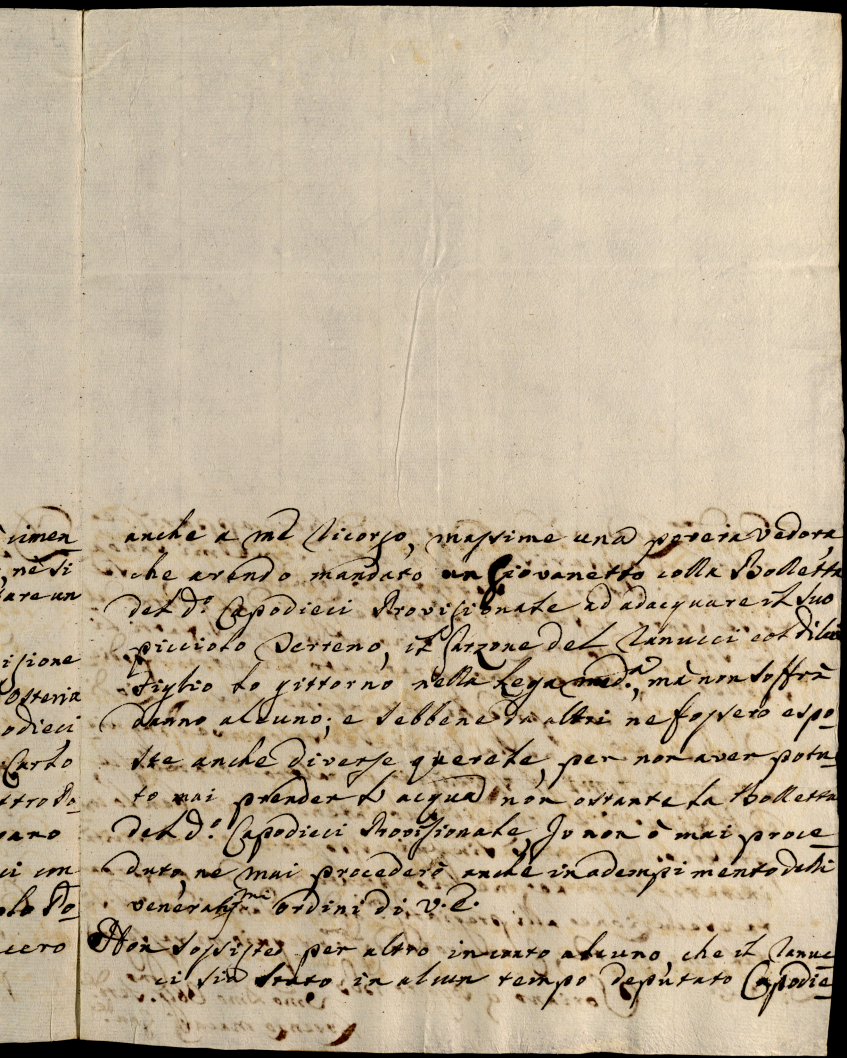 cimen
né si
are un
isione
Osteria
odieci
Carlo
ttro Po
pano
ci con
olo Po
cero
anche a me ricorso, massime una povera Vedova,
che avendo mandato un Giovanetto colla Bolletta
del d.º Capodieci Provisionale ad adacquare il suo
picciolo Terreno, il Garzone del Vanucci col di lui
Figlio lo gittorno nella Lega med.ª, mà non soffrì
danno alcuno; e sebbene da altri ne fossero espo-
ste anche diverse querele, per non aver potu-
to mai prender l'acqua non ostante la Bolletta
del d.º Capodieci Provisionale, Io non ò mai proce-
duto, ne mai procederò anche in adempimento delli
venerat.mi ordini di V.E.
Non sossiste per altro in conto alcuno, che il Vanuc-
ci sia stato in alcun tempo deputato Capodie-